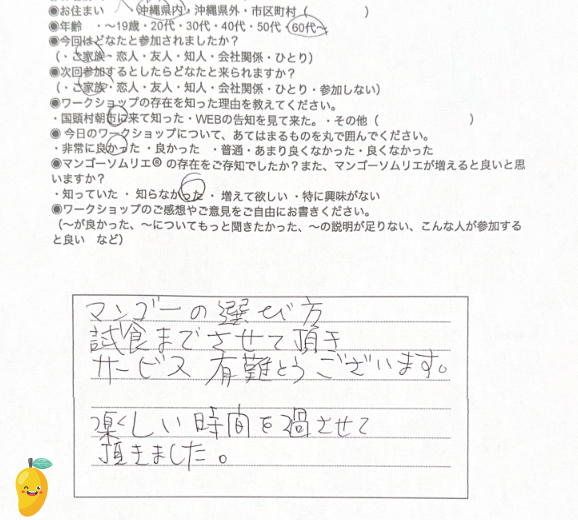 ◉お住まい ・沖縄県内・沖縄県外・市区町村（　　　　）
◉年齢 ・～19歳・20代・30代・40代・50代・60代～
◉今回はどなたと参加されましたか？
（・ご家族・恋人・友人・知人・会社関係・ひとり）
◉次回参加するとしたらどなたと来られますか？
（・ご家族・恋人・友人・知人・会社関係・ひとり・参加しない）
◉ワークショップの存在を知った理由を教えてください。
・国頭村朝市に来て知った・WEBの告知を見て来た。・その他（　　　　）
◉ 今日のワークショップについて、あてはまるものを丸で囲んでください。
・非常に良かった・良かった ・普通・あまり良くなかった・良くなかった
◉マンゴーソムリエ®の存在をご存知でしたか？また、マンゴーソムリエが増えると良いと思
いますか？
・知っていた ・ 知らなかった ・ 増えて欲しい ・特に興味がない
◉ワークショップのご感想やご意見をご自由にお書きください。
（～が良かった、～についてもっと聞きたかった、～の説明が足りない、こんな人が参加する
と良い など）
マンゴーの選び方
試食までさせて頂き
サービス有難とうございます。
楽しい時間を過させて
頂きました。